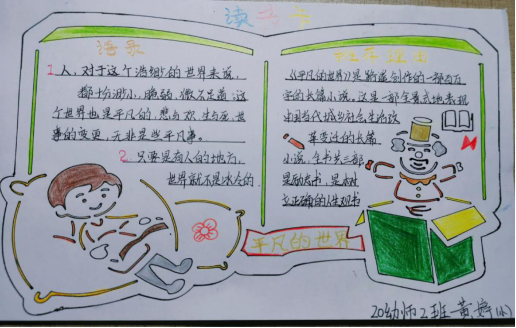 读书卡
摘录
1. 人，对于这个浩瀚的世界来说，
都十分渺小，脆弱，微不足道，这
个世界也是平凡的，悲与欢、生与死、世
事的变更，无非是些平凡事。
2. 只要是有人的地方，
世界就不是冰冷的.
推荐理由
《平凡的世界》是路遥创作的一部百万
字的长篇小说，这是一部全景式地表现
中国当代城乡社会生活
的长篇
小说，全书共三部
是励志书，是树
立正确的人生观书
平凡的世界
20幼师2班 黄婷(小)